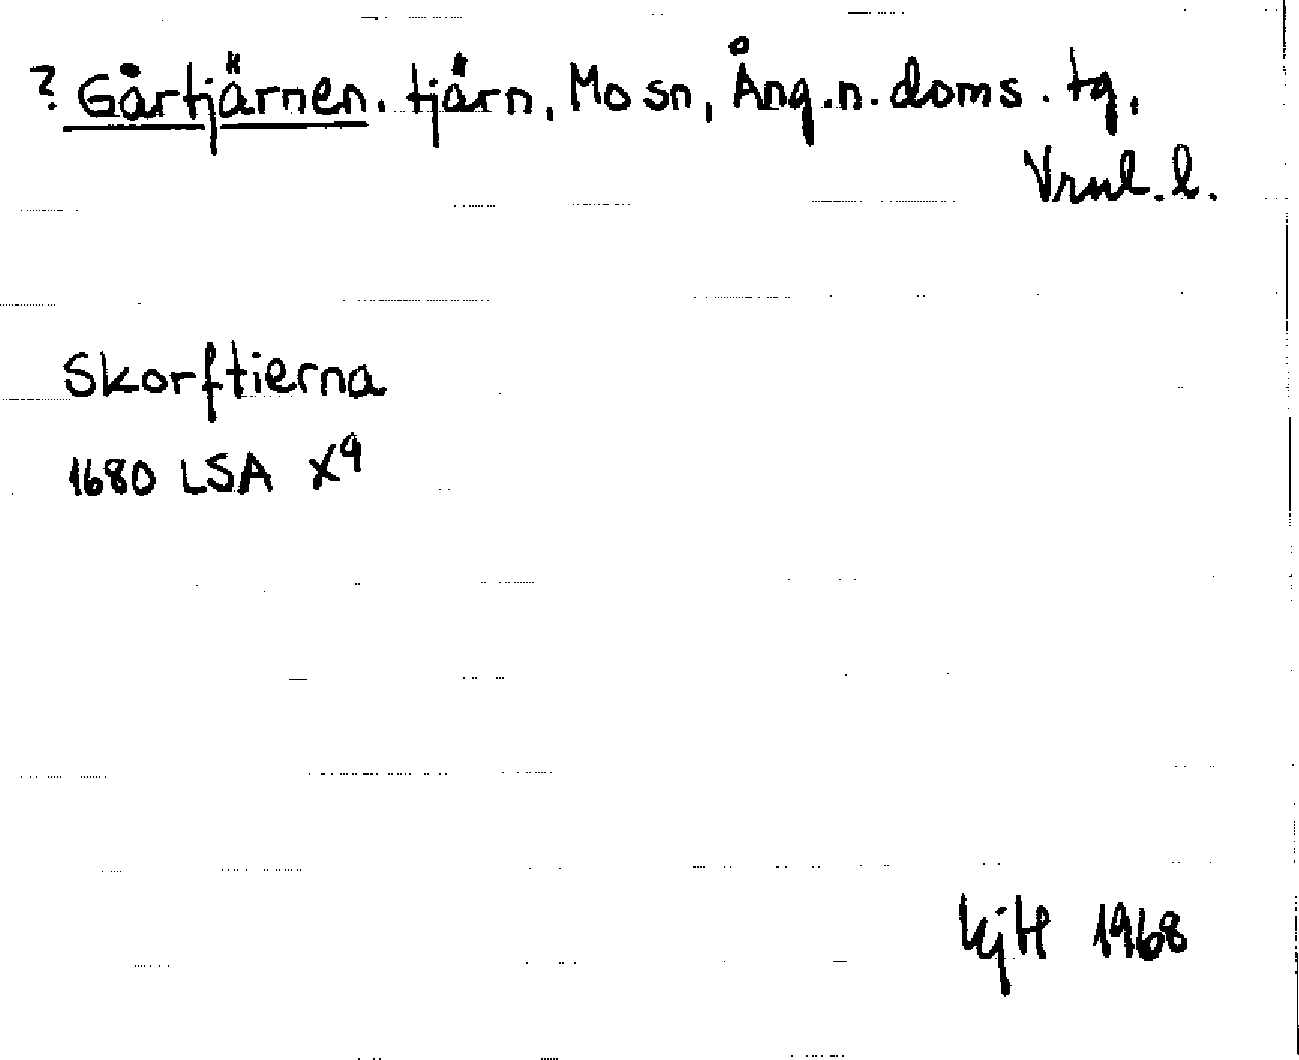 ? Gårtjärnen. tjärn, Mo sn, Ång.n.doms.tg,
Vrnl.l.
Skorftierna
1680 LSA X9
KjH 1968